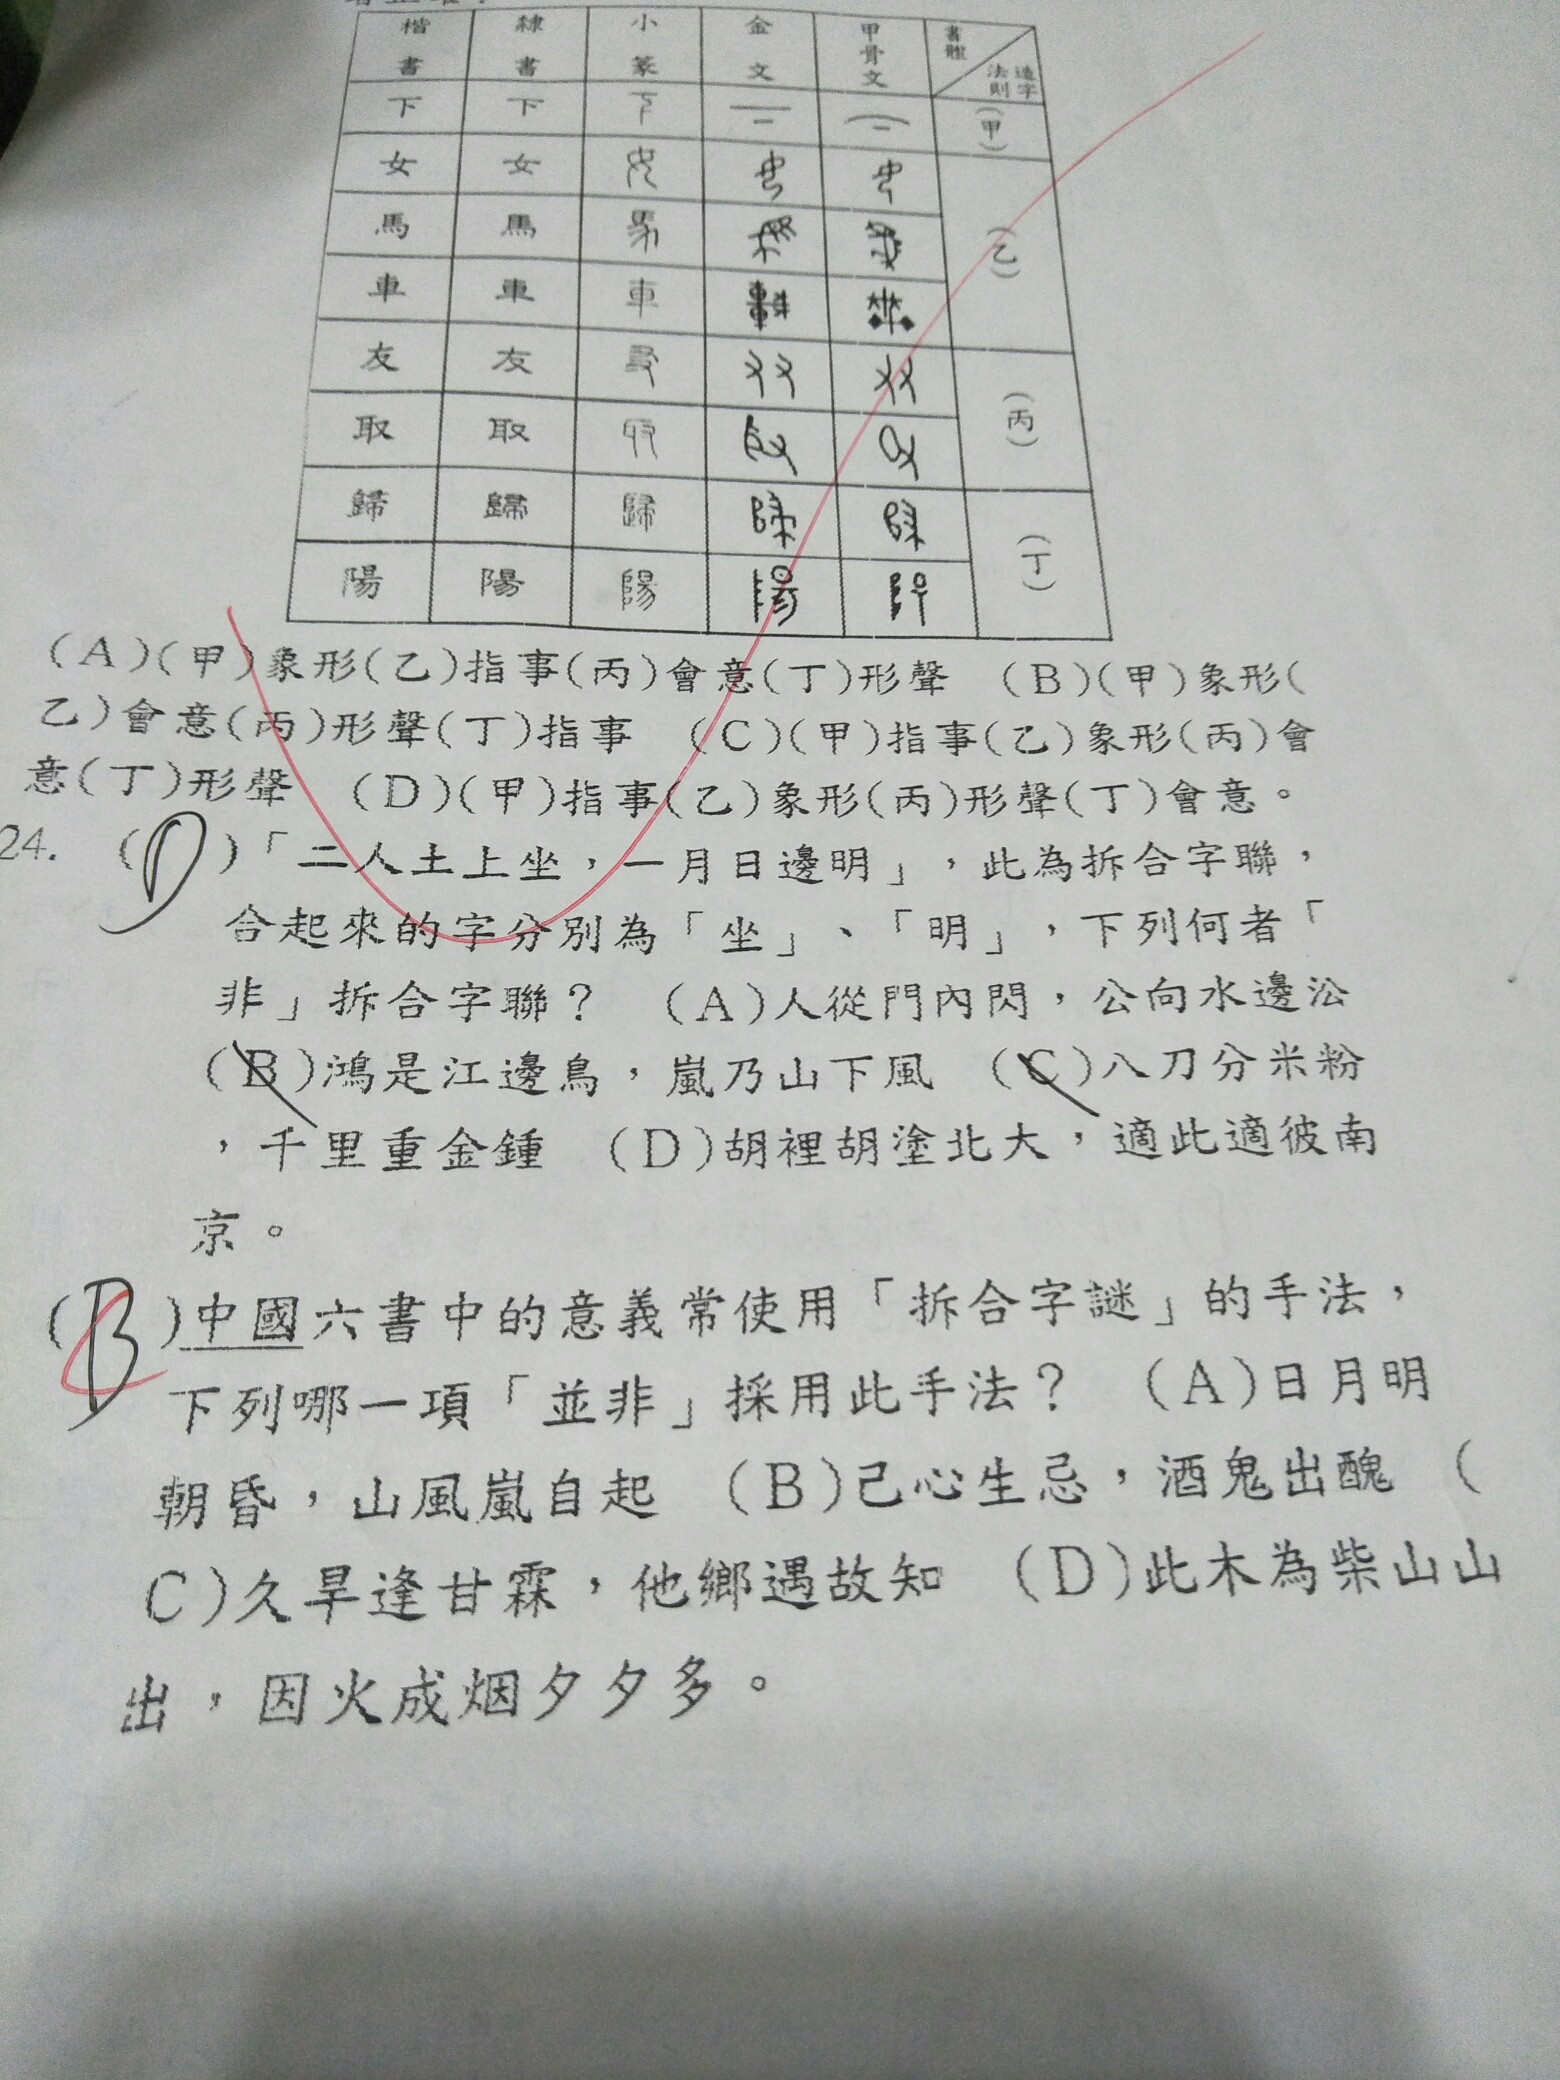 楷書 隸書 小篆 金文 甲骨文 書體 造字法則
下 下 (甲)
女 女 (乙)
馬 馬
車 車 車
友 友 (丙)
取 取
歸 歸 歸 (丁)
陽 陽 陽
(A)(甲)象形(乙)指事(丙)會意(丁)形聲 (B)(甲)象形(
乙)會意(丙)形聲(丁)指事 (C)(甲)指事(乙)象形(丙)會
意(丁)形聲 (D)(甲)指事(乙)象形(丙)形聲(丁)會意。
24. (D)「二人土上坐，一月日邊明」，此為拆合字聯，
合起來的字分別為「坐」、「明」，下列何者「
非」拆合字聯？ (A)人從門內閃，公向水邊㳂
(B)鴻是江邊鳥，嵐乃山下風 (C)八刀分米粉
，千里重金鍾 (D)胡裡胡塗北大，適此適彼南
京。
(B)中國六書中的意義常使用「拆合字謎」的手法，
下列哪一項「並非」採用此手法？ (A)日月明
朝昏，山風嵐自起 (B)己心生忌，酒鬼出醜 (
C)久旱逢甘霖，他鄉遇故知 (D)此木為柴山山
出，因火成烟夕夕多。